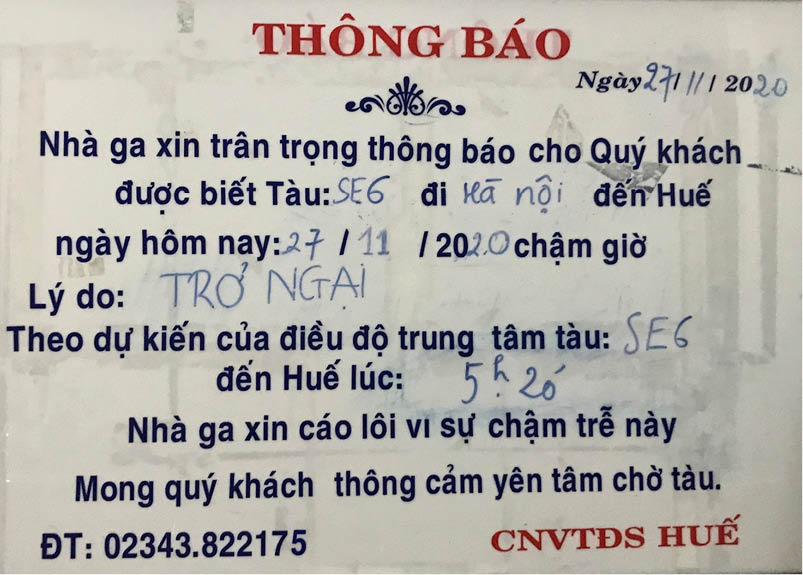 THÔNG BÁO
Ngày 27/11/2020
Nhà ga xin trân trọng thông báo cho Quý khách
được biết Tàu: SE6 đi Hà nội đến Huế
ngày hôm nay: 27/11/2020 chậm giờ
Lý do: TRỞ NGẠI
Theo dự kiến của điều độ trung tâm tàu: SE6
đến Huế lúc: 5h 20'
Nhà ga xin cáo lôi vı sự chậm trễ này
Mong quý khách thông cảm yên tâm chờ tàu.
ĐT: 02343.822175
CNVTĐS HUẾ